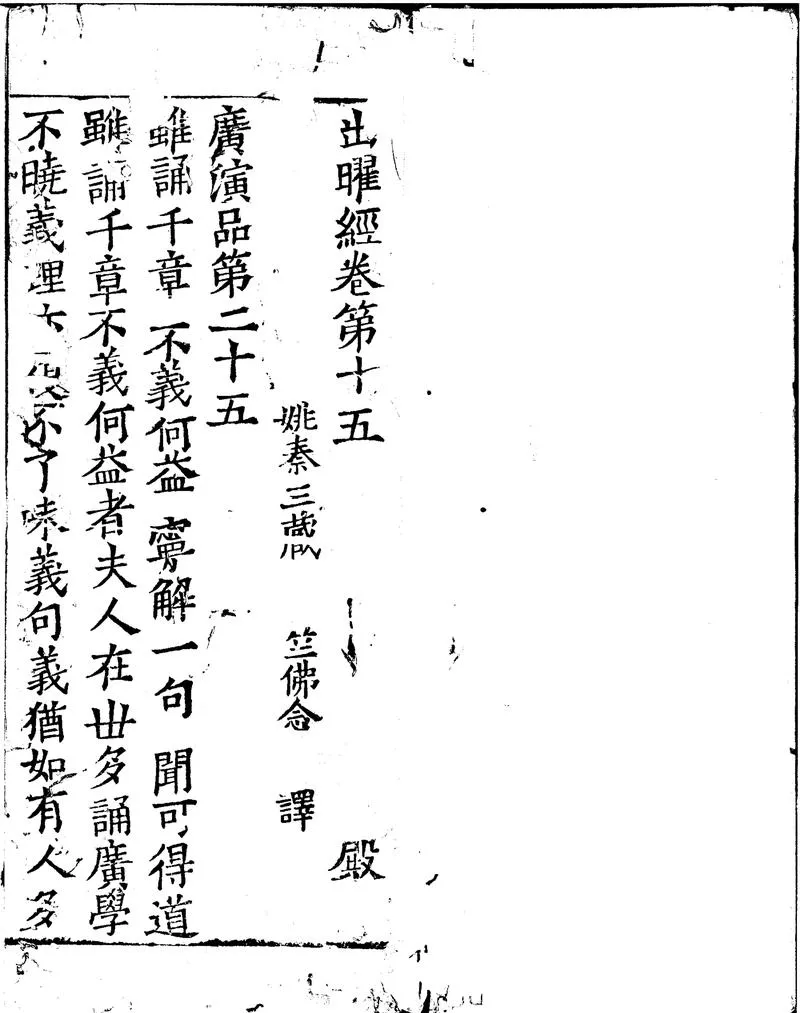 出曜經卷第十五 殿
姚秦三藏 竺佛念 譯
廣演品第二十五
雖誦千章 不義何益 寧解一句 聞可得道
雖誦千章不義何益者夫人在世多誦廣學
不曉義理亦不了味義句義猶如有人多